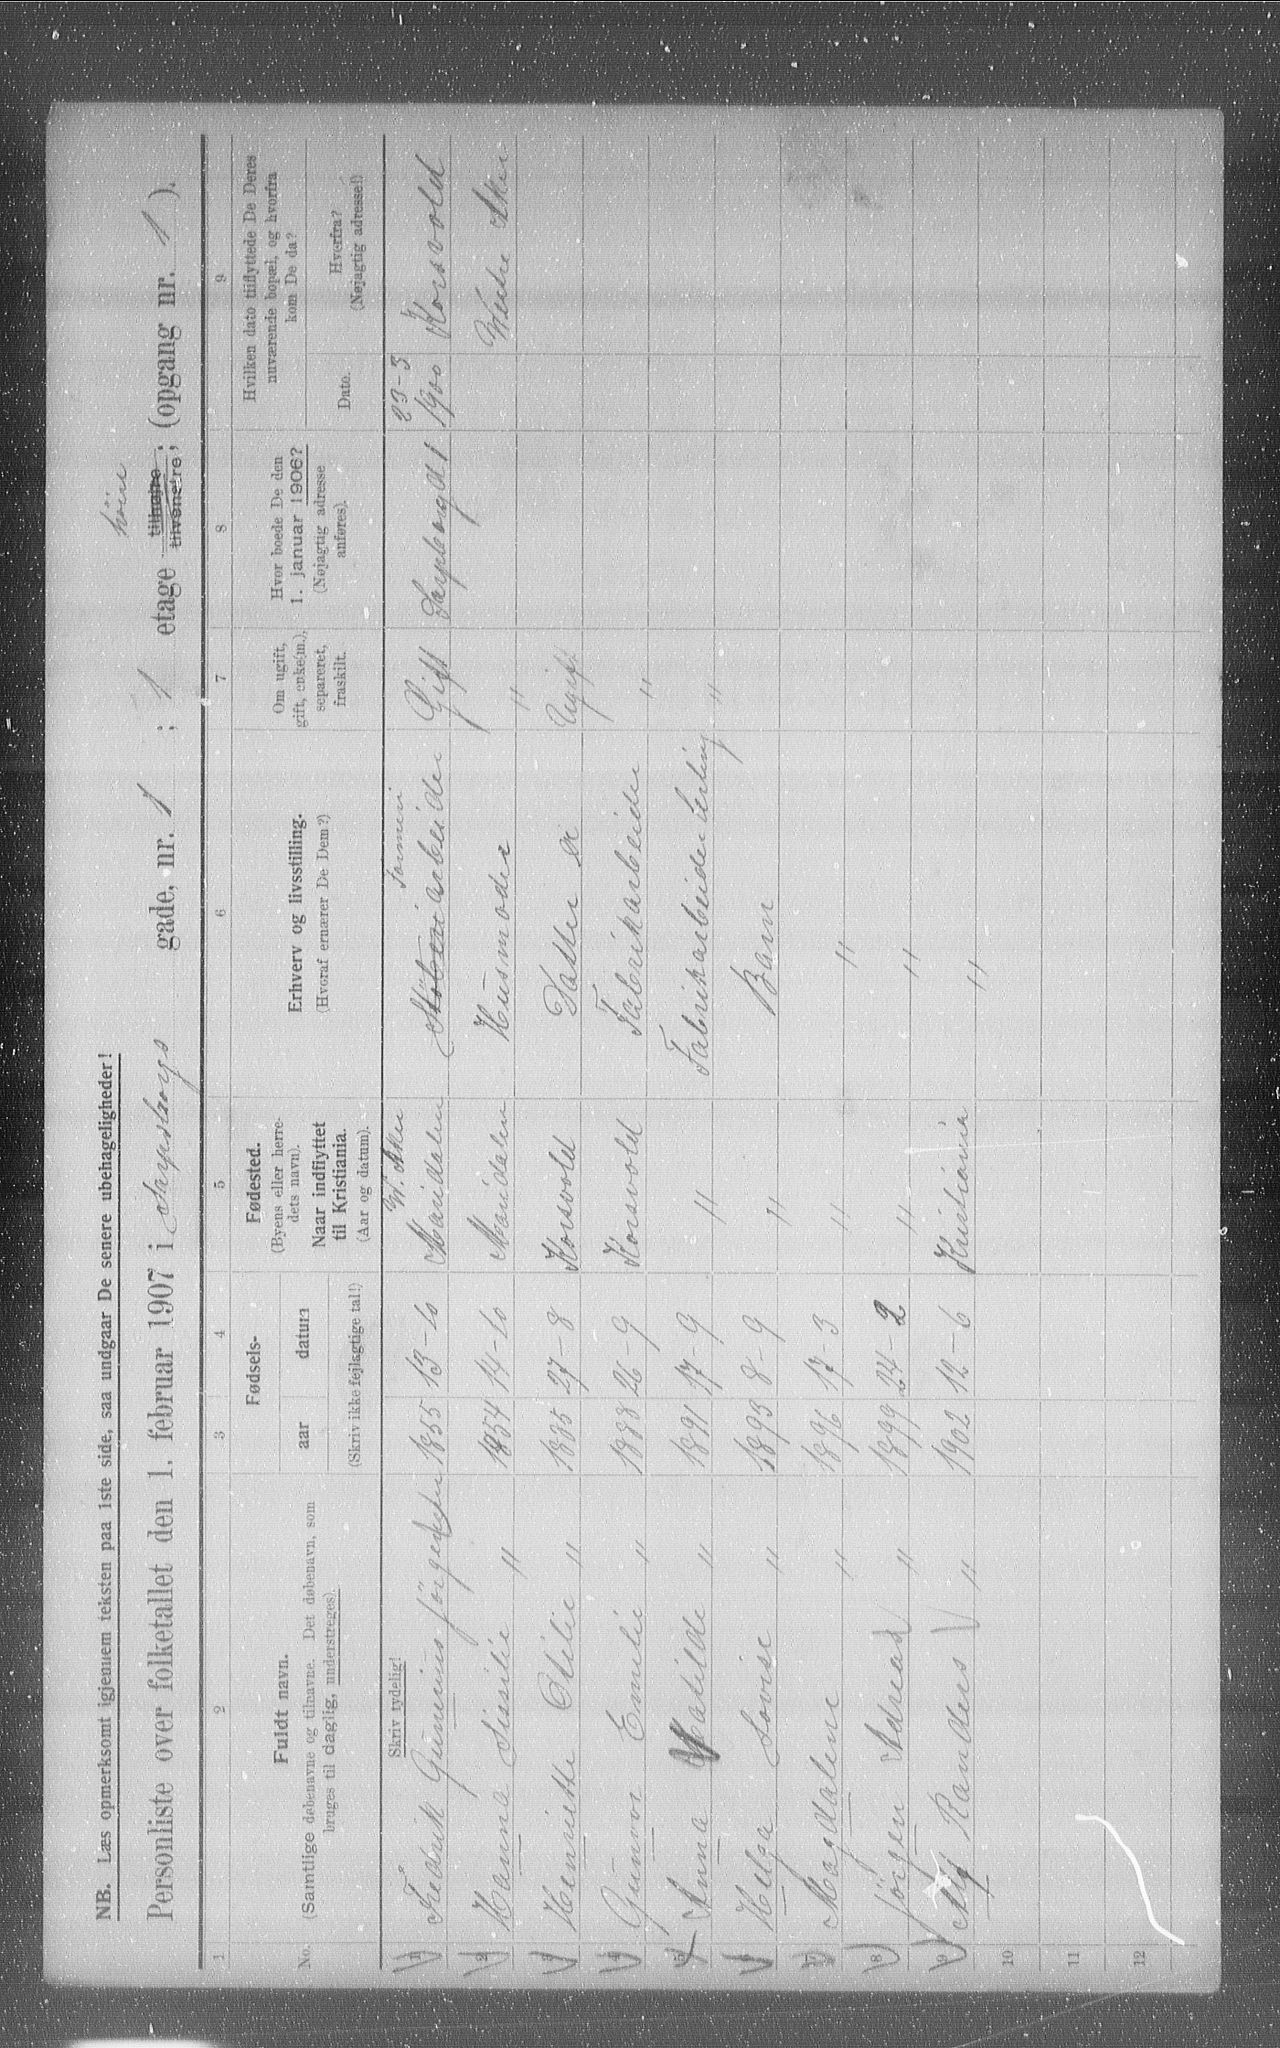 NB. Læs opmerksomt igjennem teksten paa 1ste side, saa undgaar De senere ubehageligheder!
høire
Personliste over folketallet den 1. februar 1907 i Sarpsborgs gade, nr. 1 ; 1 etage tilhøjre tilvenstre; (opgang nr. 1 ).
1 2 3 4 5 6 7 8 9
No.
Fuldt navn.
(Samtlige døbenavne og tilnavne. Det døbenavn, som
bruges til daglig, understreges).
Fødsels-
aar datum
(Skriv ikke fejlagtige tal!)
Fødested.
(Byens eller herre-
dets navn).
Naar indflyttet
til Kristiania.
(Aar og datum).
Erhverv og livsstilling.
(Hvoraf ernærer De Dem?)
Om ugift,
gift, enke(m.),
separeret,
fraskilt.
Hvor boede De den
1. januar 1906?
(Nøjagtig adresse
anføres).
Hvilken dato tilflyttede De Deres
nuværende bopæl, og hvorfra
kom De da?
Dato.
Hvorfra?
(Nøjagtig adresse!)
Skriv tydelig!
W. Aker
23-3
1 Fredrik Gunerius Jörgensen 1855 13-10 Maridalen Støberiarbeider Gift Sarpborgd 1 1900 Korsvold
2 Hanna Sissilie " 1854 14-10 Maridalen Husmoder " Westre Aker
3 Henriette Otilie " 1885 27-8 Korsvold Datter Ugift
4 Gunvor Emilie " 1888 26-9 Korsvold Fabrikarbeider "
5 Anna Matilde " 1891 17-9 " Fabrikarbeider "
6 Helga Lovise " 1893 8-9 " Barn
7 Magdalene " 1896 17-3 " "
8 Jörgen Adrean " 1899 24-2 " "
9 Alf Randers " 1902 12-6 Kristiania "
10
11
12